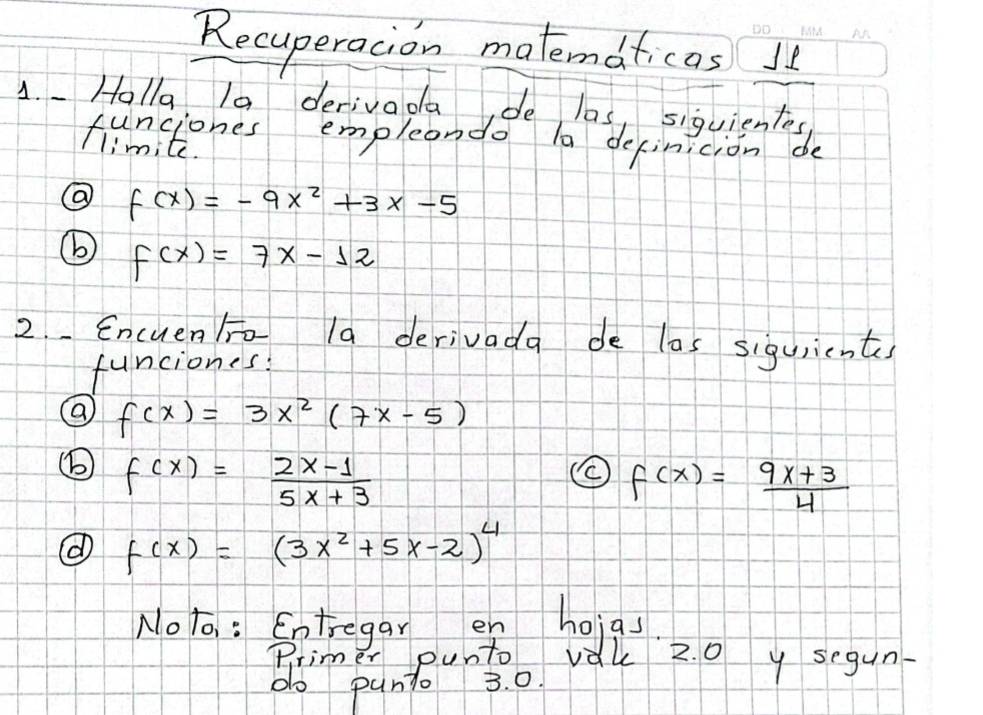 DD MM AA
Recuperación matemáticas 11
1.- Halla la derivada de las siguientes
funciones empleando la definición de
límite.
ⓐ f(x) = -9x² +3x -5
ⓑ f(x) = 7x - 12
2.- Encuentra la derivada de las siguientes
funciones:
ⓐ f(x) = 3x² (7x - 5)
ⓑ f(x) = (2x-1)/(5x+3) ⓒ f(x) = (9x+3)/4
ⓓ f(x) = (3x² +5x-2)⁴
Nota: Entregar en hojas.
Primer punto vale 2.0 y segun-
do punto 3.0.